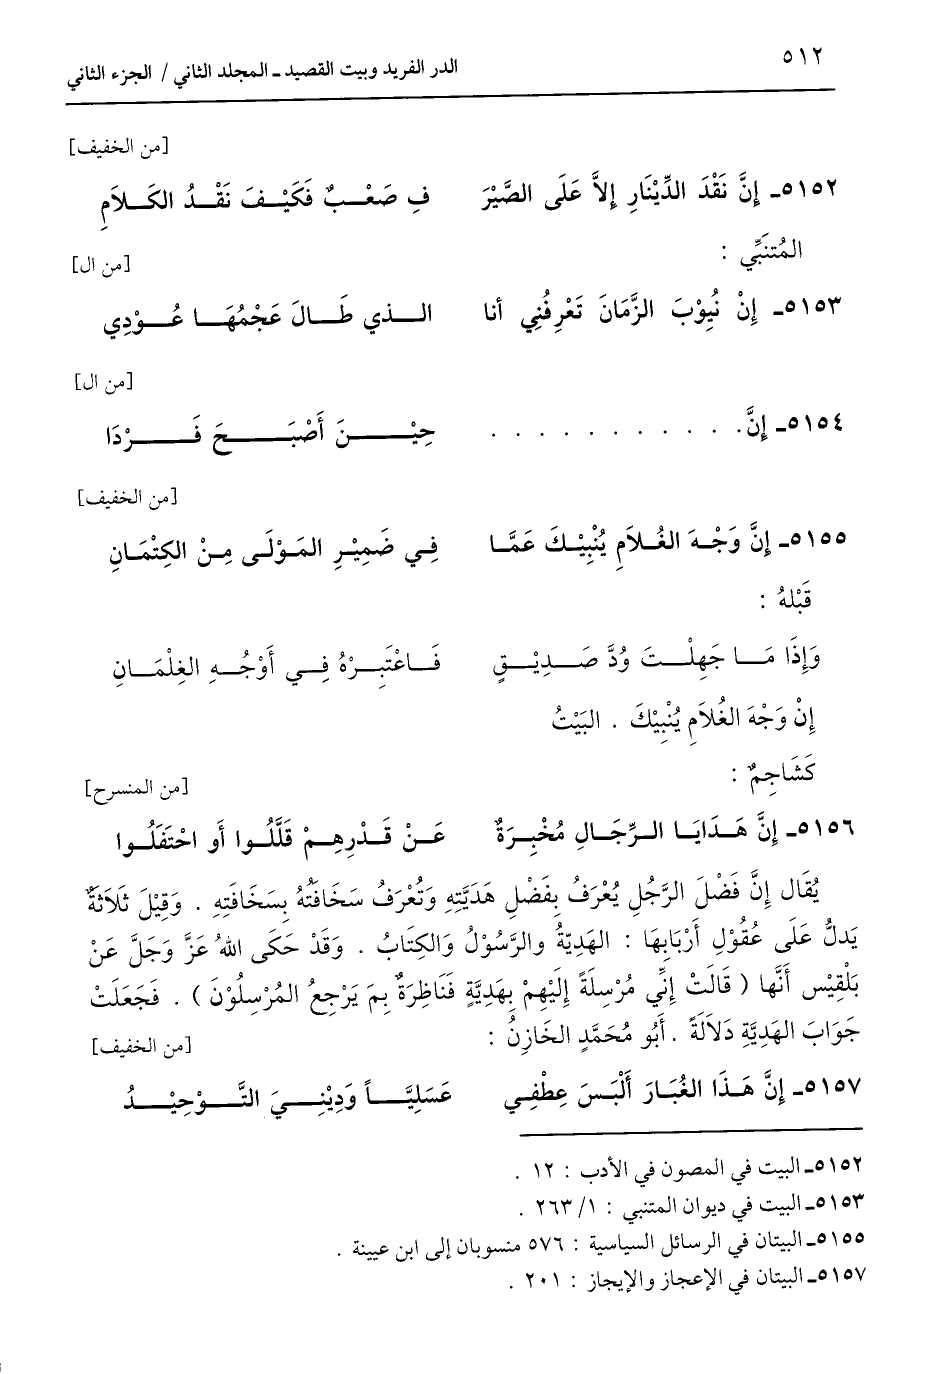 ٥١٢
الدر الفريد وبيت القصيد ـ المجلد الثاني / الجزء الثاني
[من الخفيف]
٥١٥٢ـ إِنَّ نَقْدَ الدِّيْنَارِ إِلاَّ عَلَى الصَّيْرَ فِ صَعْبٌ فَكَيْفَ نَقْدُ الكَلاَمِ
المُتنَبِّي :
[من ال]
٥١٥٣ـ إِنْ نُيُوْبَ الزَّمَانَ تَعْرِفُنِي أنا الذي طَالَ عَجْمُهَا عُوْدِي
[من ال]
٥١٥٤ـ إِنَّ . . . . . . . . . . . حِيْنَ أَصْبَحَ فَرْدَا
[من الخفيف]
٥١٥٥ـ إِنَّ وَجْهَ الغُلاَمِ يُنْبِيْكَ عَمَّا فِي ضَمِيْرِ المَوْلَى مِنْ الكِتْمَانِ
قَبْلهُ :
وَإِذَا مَا جَهِلْتَ وُدَّ صَدِيْقٍ فَاعْتَبِرْهُ فِي أَوْجُهِ الغِلْمَانِ
إِنْ وَجْهَ الغُلاَمِ يُنْبِيْكَ . البَيْتُ
كَشَاجِمٌ :
[من المنسرح]
٥١٥٦ـ إِنَّ هَدَايَا الرِّجَالِ مُخْبِرَةٌ عَنْ قَدْرِهِمْ قَلَّلُوا أَو احْتَفَلُوا
يُقَال إِنَّ فَضْلَ الرَّجُلِ يُعْرَفُ بِفَضْلِ هَدَيَّتِهِ وَتُعْرَفُ سَخَافَتُهُ بِسَخَافَتِهِ . وَقِيْلَ ثَلاَثَةٌ
يَدلُّ عَلَى عُقُوْلِ أَرْبَابِهَا : الهَدِيّةُ والرَّسُوْلُ وَالكِتَابُ . وَقَدْ حَكَى اللهُ عَزَّ وَجَلَّ عَنْ
بَلْقِيْس أَنَّها ( قَالَتْ إِنِّي مُرْسِلَةً إِلَيْهِمْ بِهَدِيَّةٍ فَنَاظِرَةٌ بِمَ يَرْجِعُ المُرْسِلُوْنَ ) . فَجَعَلَتْ
جَوَابَ الهَدِيَّةِ دَلاَلَةً . أَبُو مُحَمَّدٍ الخَازِنُ :
[من الخفيف]
٥١٥٧ـ إِنَّ هَذَا الغُبَارَ أَلْبَسَ عِطْفِي عَسَلِيَّاً وَدِيْنِيَ التَّوْحِيْدُ
٥١٥٢ـ البيت في المصون في الأدب : ١٢ .
٥١٥٣ـ البيت في ديوان المتنبي : ١/ ٢٦٣ .
٥١٥٥ـ البيتان في الرسائل السياسية : ٥٧٦ منسوبان إلى ابن عيينة .
٥١٥٧ـ البيتان في الإعجاز والإيجاز : ٢٠١ .